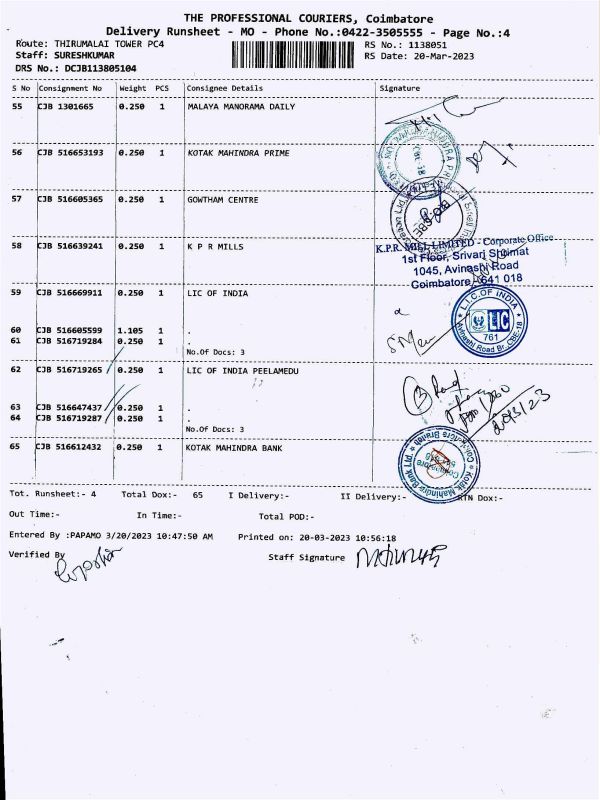 THE PROFESSIONAL COURIERS, Coimbatore
Delivery Runsheet - MO - Phone No.:0422-3505555 - Page No.:4
Route: THIRUMALAI TOWER PC4 RS No.: 1138051
Staff: SURESHKUMAR RS Date: 20-Mar-2023
DRS No.: DCJB113805104
S No Consignment No Weight PCS Consignee Details Signature
55 CJB 1301665 0.250 1 MALAYA MANORAMA DAILY
56 CJB 516653193 0.250 1 KOTAK MAHINDRA PRIME
57 CJB 516605365 0.250 1 GOWTHAM CENTRE
58 CJB 516639241 0.250 1 K P R MILLS
K.P.R. MILL LIMITED - Corporate Office
1st Floor, Srivari Shrimat
1045, Avinashi Road
Coimbatore - 641 018
59 CJB 516669911 0.250 1 LIC OF INDIA
L.I.C.OF INDIA
LIC
761
Avinashi Road Br. CBE-18
60 CJB 516605599 1.105 1 .
61 CJB 516719284 0.250 1 .
No.Of Docs: 3
62 CJB 516719265 0.250 1 LIC OF INDIA PEELAMEDU
3
20/3/23
63 CJB 516647437 0.250 1 .
64 CJB 516719287 0.250 1 .
No.Of Docs: 3
65 CJB 516612432 0.250 1 KOTAK MAHINDRA BANK
Kotak Mahindra Bank Ltd
Coimbatore Branch
Tot. Runsheet:- 4 Total Dox:- 65 I Delivery:- II Delivery:- RTN Dox:-
Out Time:- In Time:- Total POD:-
Entered By :PAPAMO 3/20/2023 10:47:50 AM Printed on: 20-03-2023 10:56:18
Verified By Staff Signature